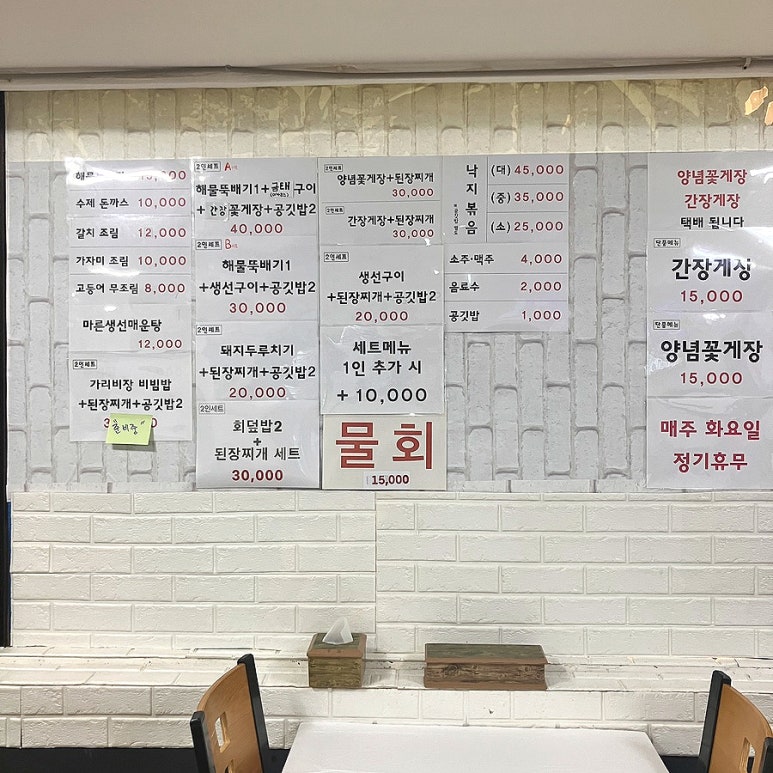 수제 돈까스 10,000
갈치 조림 12,000
가자미 조림 10,000
고등어 무조림 8,000
마른생선매운탕
12,000
2인세트
가리비장 비빔밥
+된장찌개+공깃밥2
준비중
2인세트 A세트
해물뚝배기1+금태구이
+간장꽃게장+공깃밥2
40,000
2인세트 B세트
해물뚝배기1
+생선구이+공깃밥2
30,000
돼지두루치기
+된장찌개+공깃밥2
20,000
2인세트
회덮밥2
+
된장찌개 세트
30,000
2인세트
양념꽃게장+된장찌개
30,000
2인세트
간장게장+된장찌개
30,000
2인세트
생선구이
+된장찌개+공깃밥2
20,000
세트메뉴
1인 추가 시
+10,000
물회
15,000
낙지볶음
(대) 45,000
(중) 35,000
(소) 25,000
소주·맥주 4,000
음료수 2,000
공깃밥 1,000
양념꽃게장
간장게장
택배 됩니다
단품메뉴
간장게장
15,000
단품메뉴
양념꽃게장
15,000
매주 화요일
정기휴무